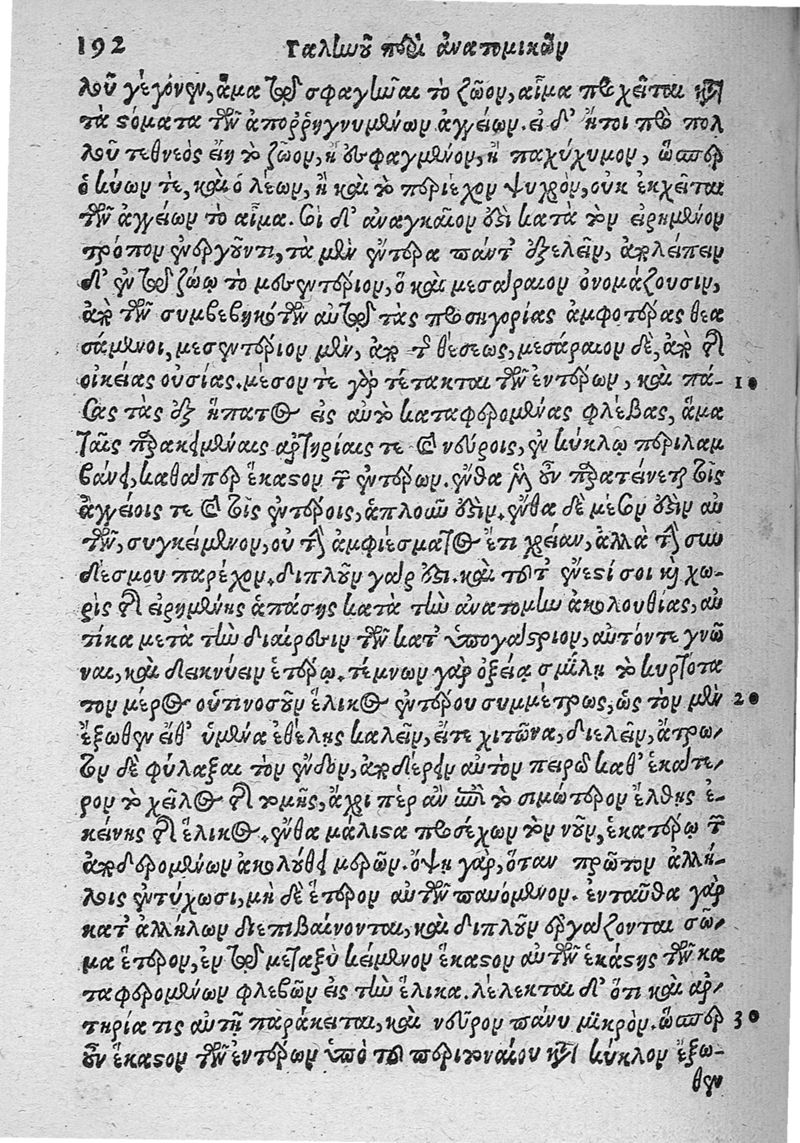 192 Γαληνοῦ περὶ ἀνατομικῶν
λοῦ γεγόνεν, ἅμα τῷ σφαγῆναι τὸ ζῶον, αἷμα προχεῖται κατὰ
τὰ στόματα τῶν ἀποῤῥηγνυμένων ἀγγείων. εἰ δ' ἤτοι πρὸ πολ
λοῦ τεθνεὸς εἴη τὸ ζῶον, ἢ ἐσφαγμένον, ἢ παχύχυμον, ὥσπερ
ὁ κύων τε, καὶ ὁ λέων, ἢ καὶ τὸ περιέχον ψυχρὸν, οὐκ ἐκχεῖται
τῶν ἀγγείων τὸ αἷμα. σοὶ δ' ἀναγκαῖον ἐστὶ κατὰ τὸν εἰρημένον
τρόπον ἐνεργοῦντι, τὰ μὲν ἔντερα πάντ' ἐξελεῖν, ἀπολείπειν
δ' ἐν τῷ ζώῳ τὸ μεσεντέριον, ὃ καὶ μεσάραιον ὀνομάζουσιν,
ἀπὸ τῶν συμβεβηκότων αὐτῷ τὰς προσηγορίας ἀμφοτέρας θεα
σάμενοι, μεσεντέριον μὲν, ἀπὸ τῆς θέσεως, μεσάραιον δὲ, ἀπὸ τῆς
οἰκείας οὐσίας. μέσον τε γὰρ τέτακται τῶν ἐντέρων, καὶ πά- 10
σας τὰς ἐξ ἥπατος εἰς αὐτὸ καταφερομένας φλέβας, ἅμα
ταῖς παρακειμέναις ἀρτηρίαις τε καὶ νεύροις, ἐν κύκλῳ περιλαμ
βάνει, καθάπερ ἕκαστον τῶν ἐντέρων. ἔνθα μὲν οὖν παρατείνεται τοῖς
ἀγγείοις τε καὶ τοῖς ἐντέροις, ἁπλοῦν ἐστιν. ἔνθα δὲ μέσον ἐστὶν αὐ
τῶν, συγκείμενον, οὐ τὴν ἀμφιέσματος ἔτι χρείαν, ἀλλὰ τὴν συν
δέσμου παρέχον. διπλοῦν γάρ ἐστι. καὶ τοῦτ' ἔνεστί σοι καὶ χω-
ρὶς τῆς εἰρημένης ἁπάσης κατὰ τὴν ἀνατομὴν ἀκολουθίας, αὐ
τίκα μετὰ τὴν διαίρεσιν τῶν κατ' ὑπογάστριον, αὐτόν τε γνῶ
ναι, καὶ δεικνύειν ἑτέρῳ. τέμνων γὰρ ὀξείᾳ σμίλῃ τὸ κυρτότα
τον μέρος οὑτινοσοῦν ἕλικος ἐντέρου συμμέτρως, ὡς τὸν μὲν 20
ἔξωθεν εἴθ' ὑμένα ἐθέλῃς καλεῖν, εἴτε χιτῶνα, διελεῖν, ἄτρω-
τον δὲ φύλαξαι τὸν ἔνδον, ἀποδέρειν αὐτὸν πειρῶ καθ' ἑκάτε-
ρον τὸ χεῖλος τῆς τομῆς, ἄχρι πὲρ ἂν ἐπὶ τὸ σιμώτερον ἔλθῃς ἐ-
κείνης τῆς ἕλικος. ἔνθα μάλιστα προσέχων τὸν νοῦν, ἑκατέρῳ τῶν
ἀποδερομένων ἀκολούθει μερῶν. ὄψῃ γὰρ, ὅταν πρῶτον ἀλλή-
λοις ἐντύχωσι, μὴ δὲ ἕτερον αὐτῶν παυόμενον. ἐνταῦθα γὰρ
κατ' ἀλλήλων διεπιβαίνονται, καὶ διπλοῦν ἐργάζονται σῶ-
μα ἕτερον, ἐν τῷ μεταξὺ κείμενον ἕκαστον αὐτῶν ἑκάστης τῶν κα
ταφερομένων φλεβῶν εἰς τὴν ἕλικα. λέλεκται δ' ὅτι καὶ ἀρ-
τηρία τις αὐτῇ παράκειται, καὶ νεῦρον πάνυ μικρὸν. ὥσπερ 30
οὖν ἕκαστον τῶν ἐντέρων ὑπὸ τοῦ περιτοναίου κατὰ κύκλον ἔξω-
θεν